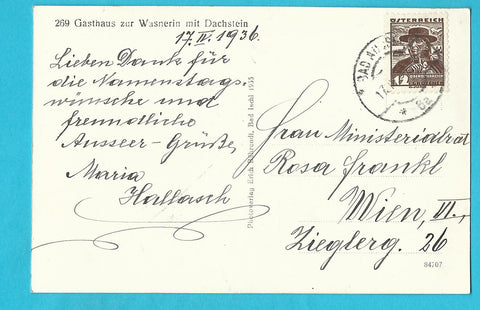 269 Gasthaus zur Wasnerin mit Dachstein
17. IV. 1936.
Lieben Dank für
die Namenstags,
wünsche und
freundliche
Ausseer-Grüße,
Maria
Hallasch
Photoverlag Bad Ischl 1935
ÖSTERREICH
12
BAD AU
17.
Frau Ministerialrat
Rosa Frankl
Wien, VII.,
Zieglerg. 26
84707